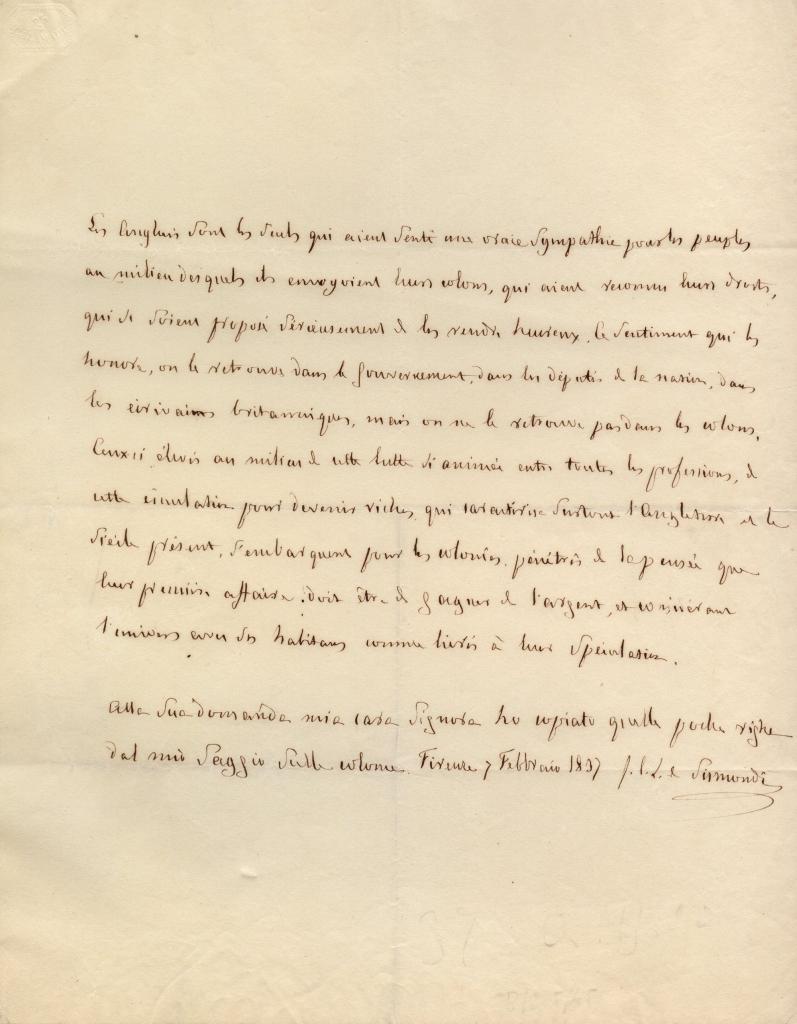 Les Anglais sont les seuls qui aient senti une vraie sympathie pour les peuples
au milieu desquels ils envoyoient leurs colons, qui aient reconnu leurs droits,
qui se soient proposé sérieusement de les rendre heureux. Ce sentiment qui les
honore, on le retrouve dans le gouvernement, dans les députés de la nation, dans
les écrivains britanniques, mais on ne le retrouve pas dans les colons.
Ceux ci élevés au milieu de cette lutte si animée entre toutes les professions, de
cette émulation pour devenir riches, qui caractérise surtout l'Angleterre et le
siècle présent, s'embarquent pour les colonies, pénétrés de la pensée que
leur première affaire doit être de gagner de l'argent, et considérant
l'univers avec ses habitans comme livrés à leur spéculation.
Alla sua domanda mia cara Signora ho copiato quelle poche righe
dal mio Saggio sulle colonie. Firenze 7 Febbraio 1837 J. C. L. de Sismondi